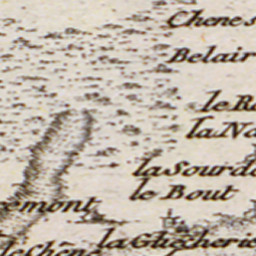 Chenes
Belair
le R
la No
la Sourd
le Bout
emont
la Guscherie
le Chêne